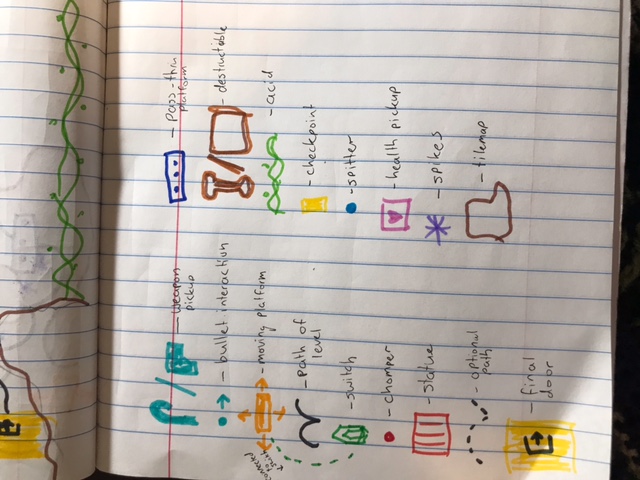 weapon
pickup
bullet interaction
connected
to
switch
moving platform
path of
level
switch
chomper
statue
optional
path
final
door
pass-thru
platform
destructable
acid
checkpoint
spitter
health pickup
spikes
tilemap